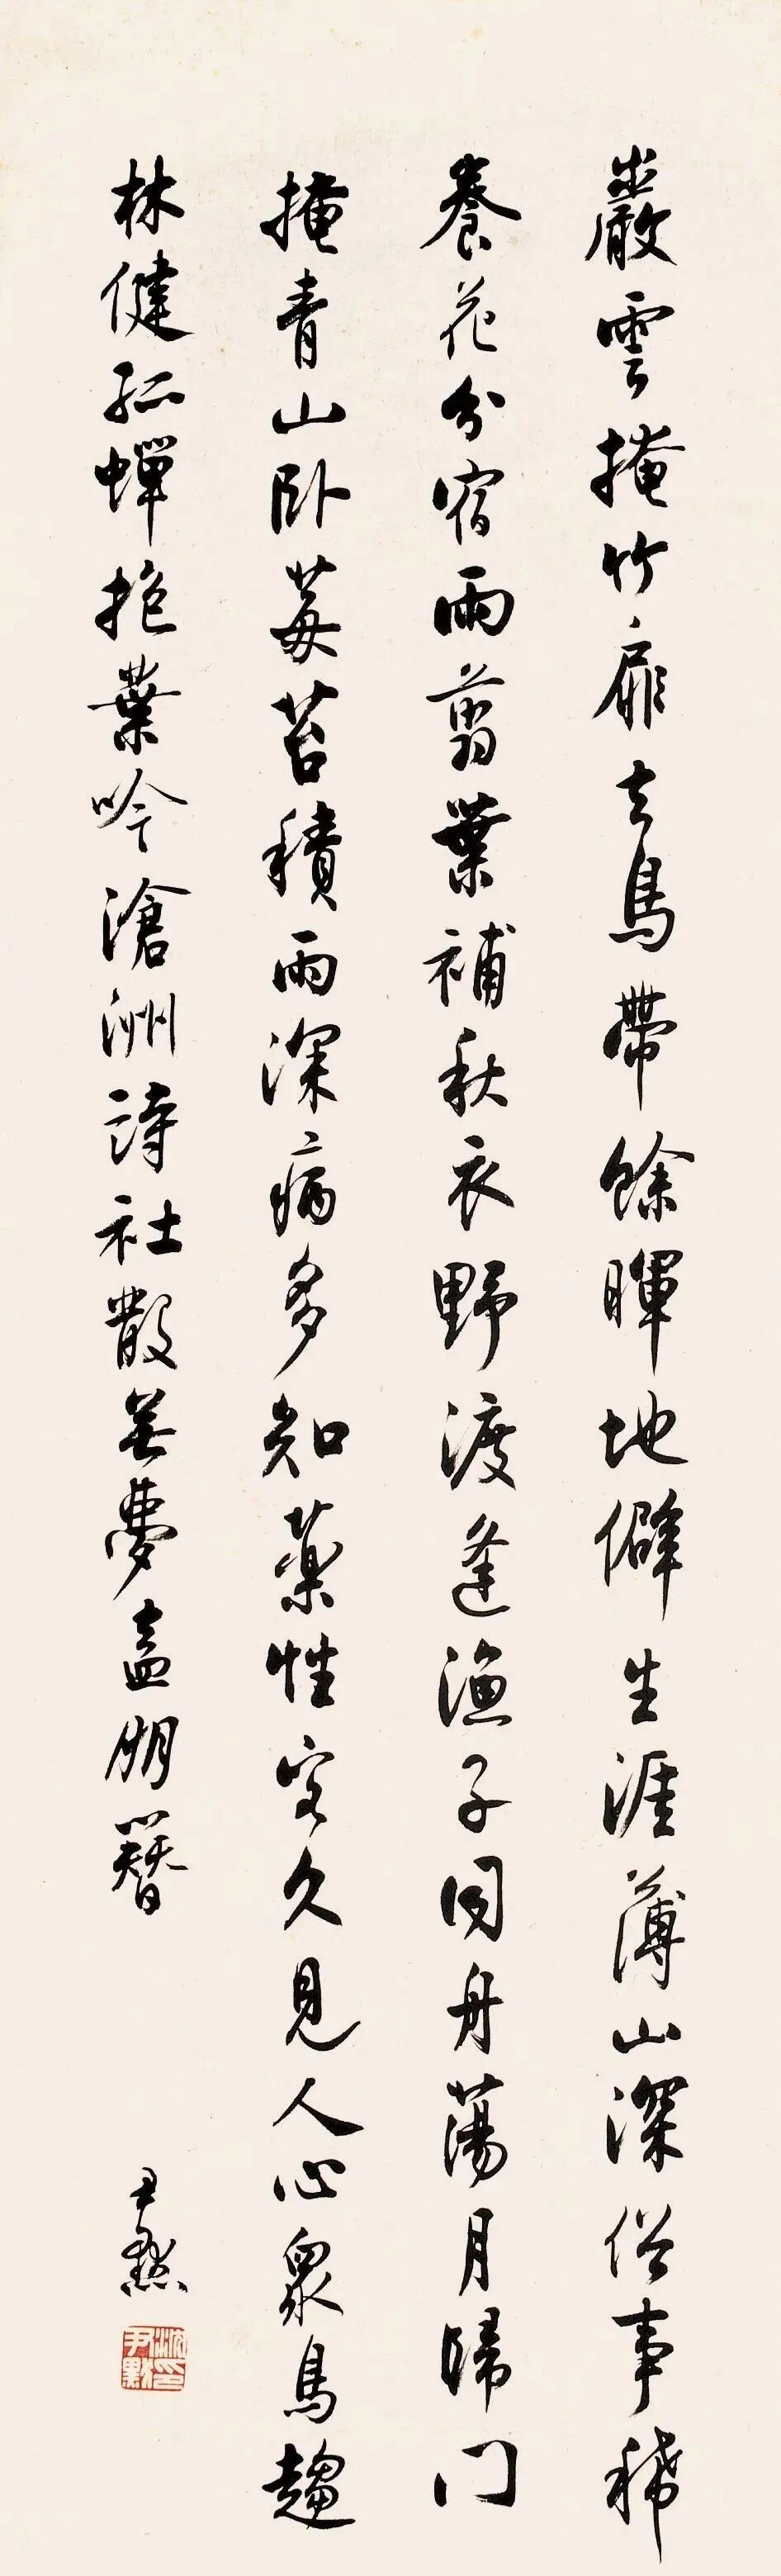 巖雲掩竹扉去鳥帶餘暉地僻生涯薄山深俗事稀
養花分宿雨翦葉補秋衣野渡逢漁子同舟蕩月歸門
掩青山卧莓苔積雨深病多知藥性客久見人心衆鳥趨
林健孤蟬抱葉吟滄洲詩社散無夢盍朋簪
尹默
沈尹默印